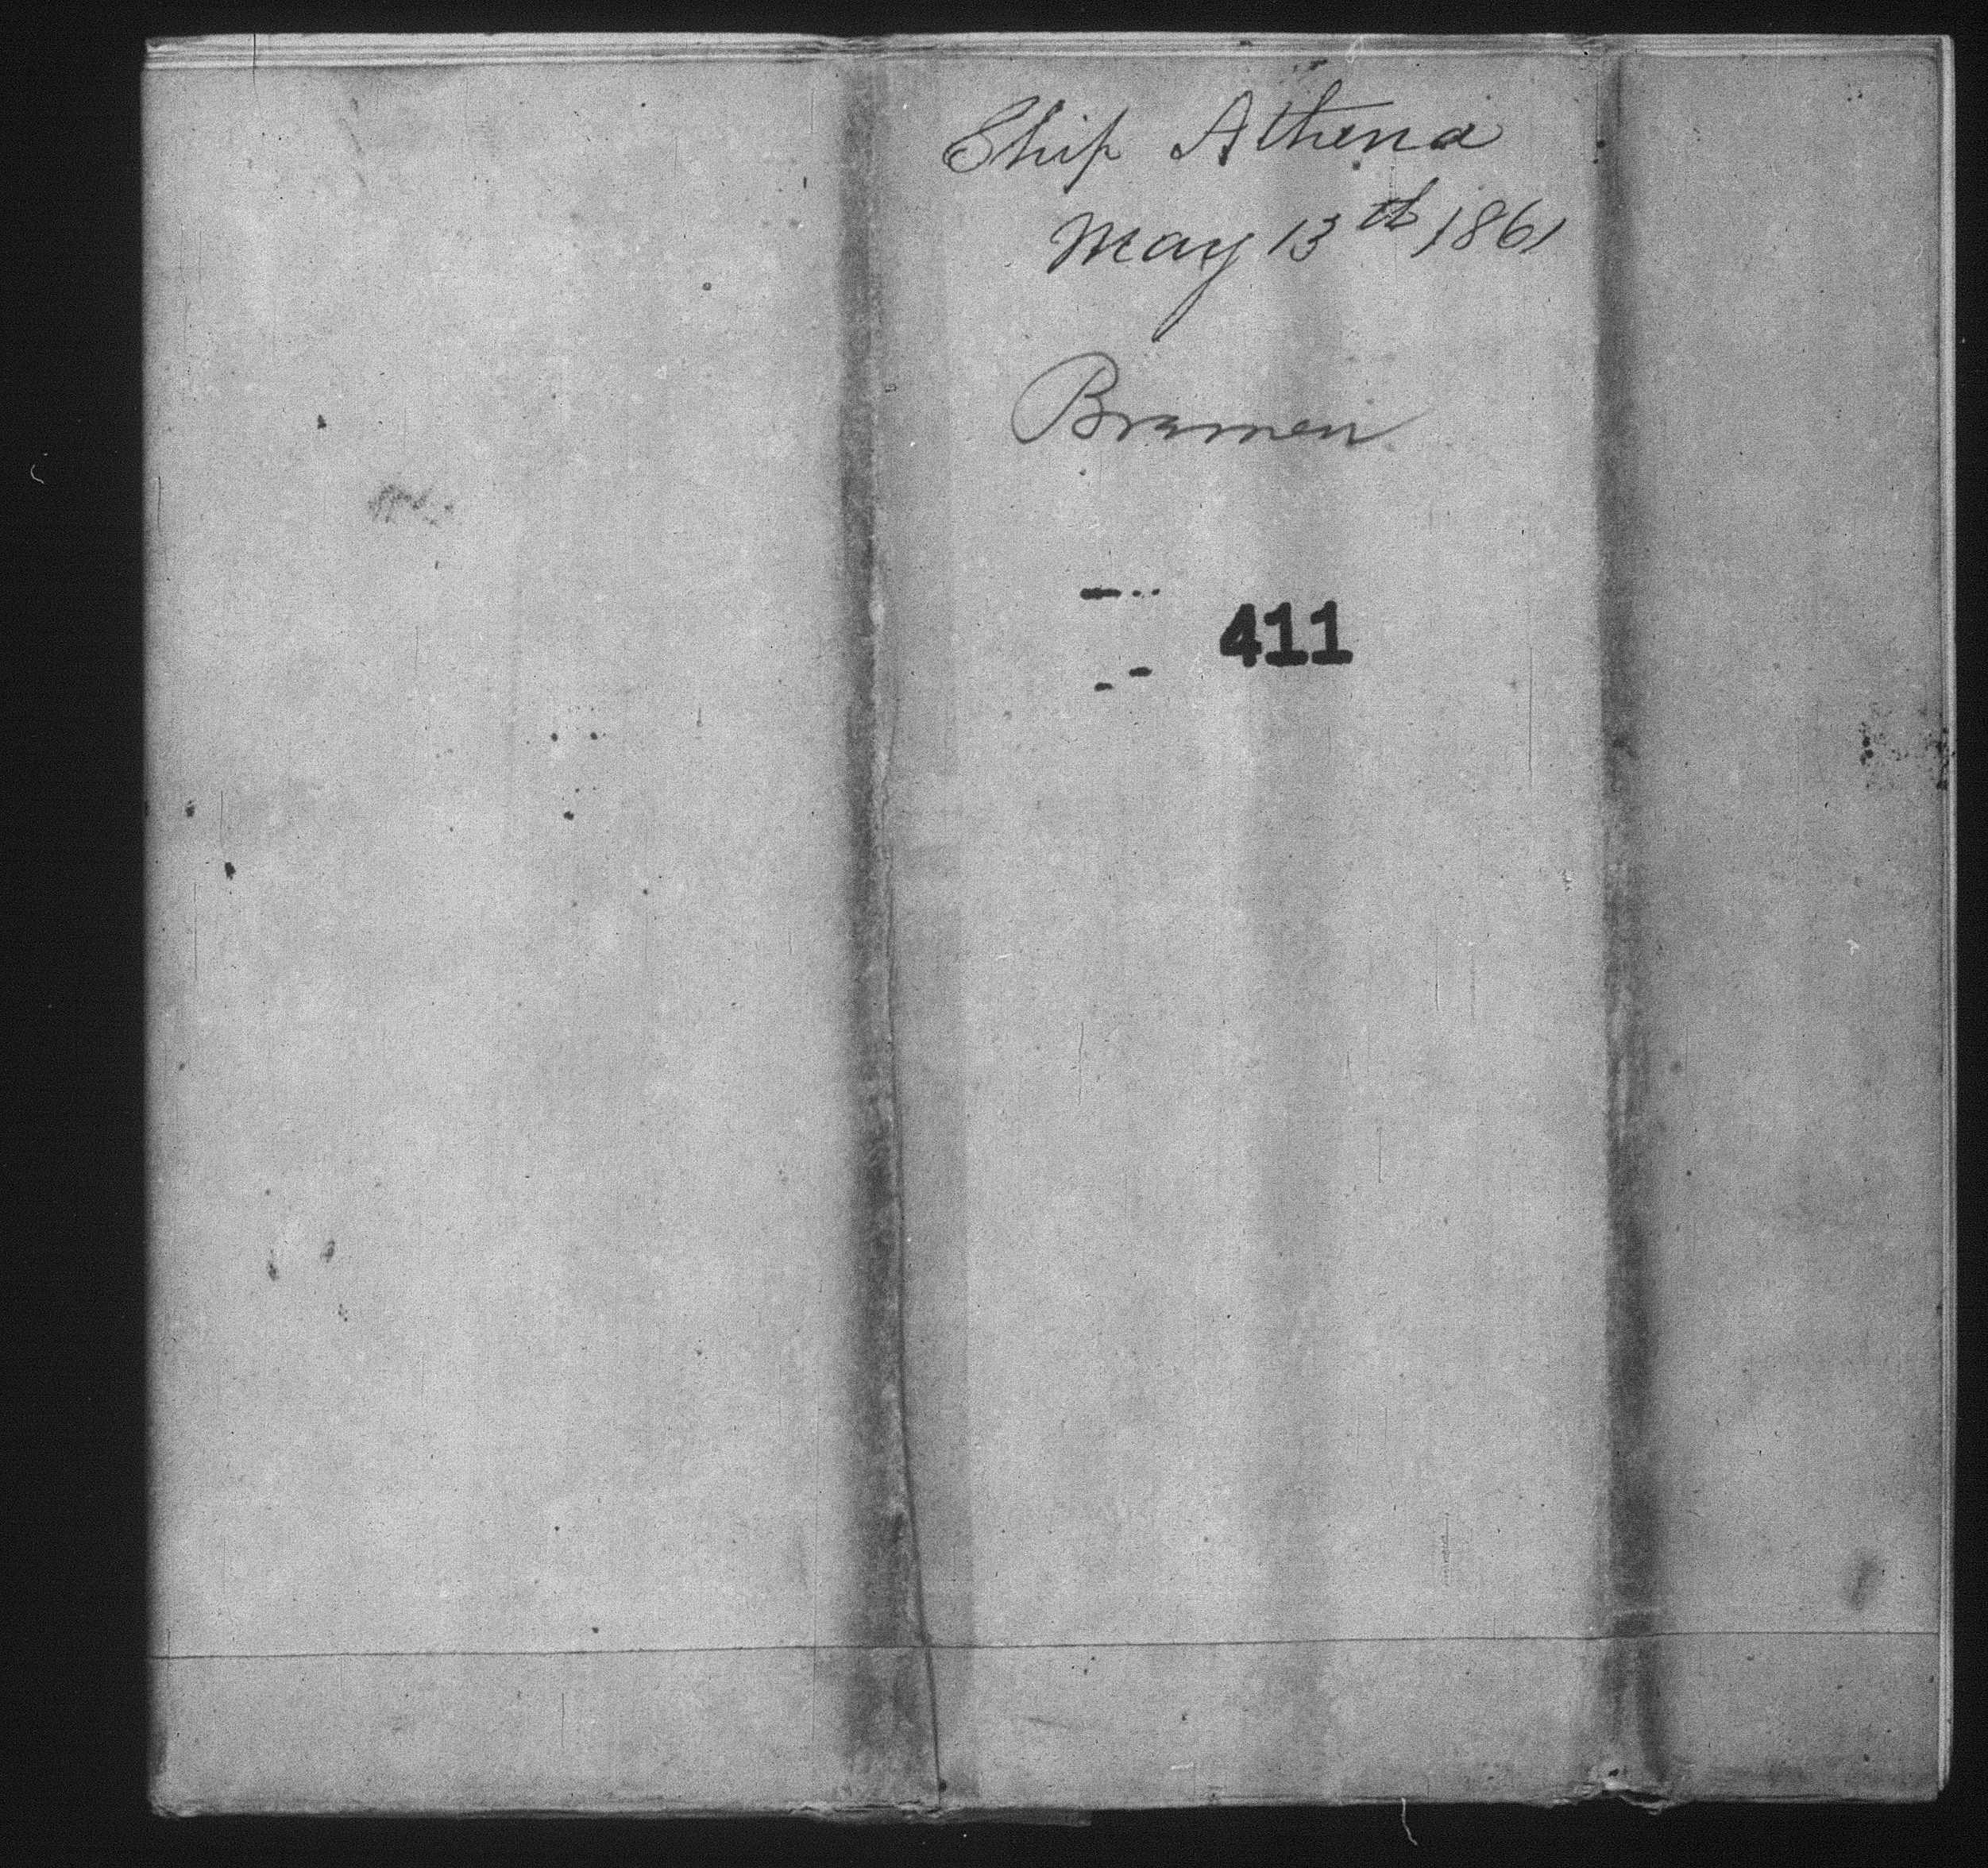 Ship Athena
May 13th 1861
Bramen
411